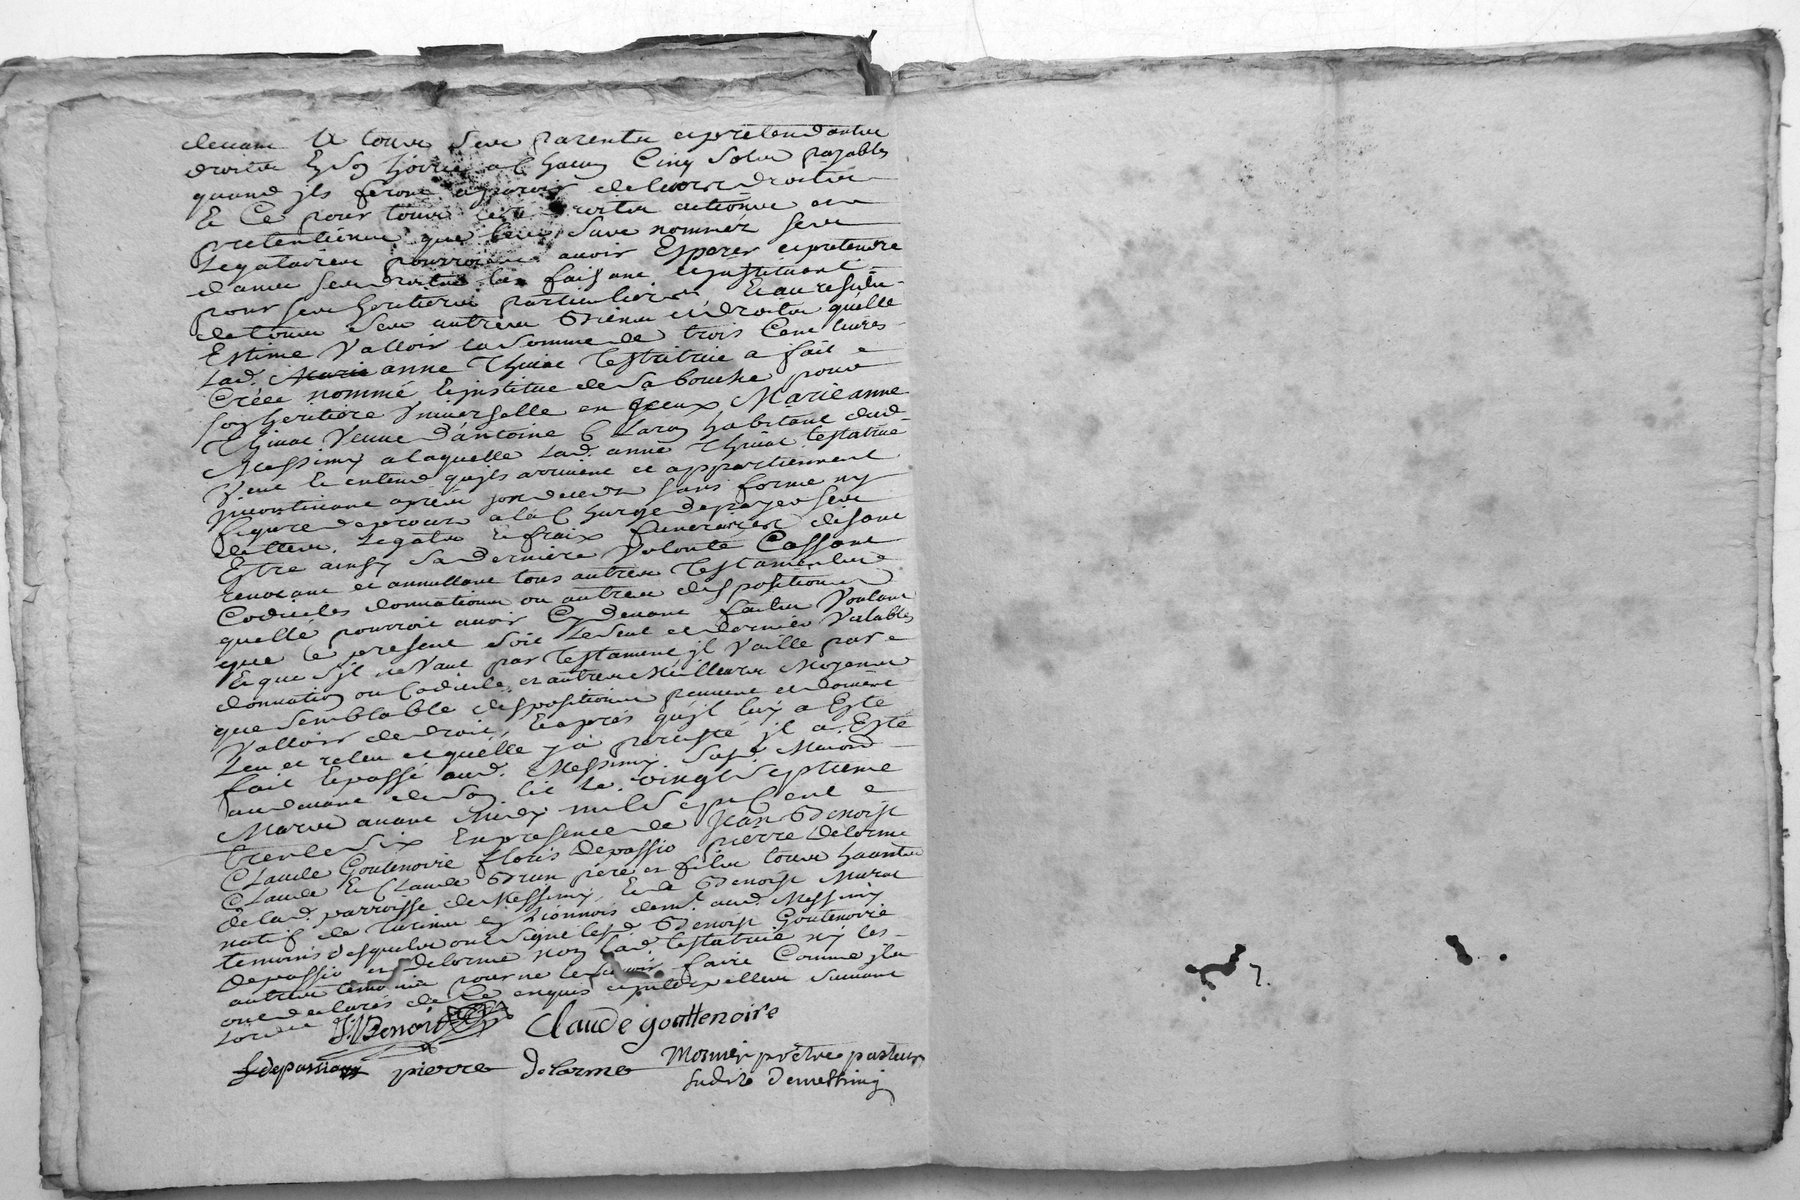 devant Et tous ses parents et pretendantes
droites En sa hoirie a chacun Cinq sols payables
quand jls feront apparoir de leurs droites
Et Ce pour tous droites actiones ou
pretentiones que les sus nommés ses
Legataires pourroient avoir Esperer et pretendre
dans ses droites les faisant et jnstituant
pour ses heritiers particuliers, Et au residu
de tous ses autres Biens et droites qu'elle
Estime Valloir la somme de trois Cent livres
Lad. Marie anne Thivat Testatrice a fait
Créée nommé Et jnstitue de sa bouche pour
son heritiere Vniverselle en yceux Marie anne
Thivat Veuve d'antoine habitant dud.
Messimy a laquelle Lad. anne Thivat testatrice
Veut Et entend qu'jls arrivent et appartiennent
jncontinant apres son deceds sans forme ny
figure de proces a la Charge de payer ses
dettes. Legats Et fraix funeraires disant
Estre ainsy sa derniere Volonté Cassant
revocant et annullant tous autres Testaments
Codiciles donnationes ou autres dispositiones
quelle pourroit avoir Cy devant faites Voulant
que le present soit Le seul et dernier Valables
Et que sjl ne Vaut par Testament jl Vaille par
donnation ou Codicile, et autres Meilleurs Moyennes
que semblable dispositiones peuvent et doivent
Valloir de droit, Et apres qu'jl luy a Esté
Leu et releu et qu'elle y a percisté jl a Esté
fait Et passé aud. Messimy
au devant de son lit le vingt septieme
Mars avant Midy mil sept Cent
trente six En presence de Jean Benoist
Claude Goutenoire floris depassio pierre Delorme
Claude Et Claude Brun pere et fils tous habitants
de lad. parroisse de Messimy, Et de Benoist Murat
natif de en Lionnois dem.t aud. Messimy
temoins desquels ont signé lesd. Benoist Goutenoire
depassio et delorme non lad. testatrice ny les
autres temoins pour ne le scavoir faire Comme jls
ont declarés de Ce enquis et jnterpellés suivant
Lordce
J. Benoit Claude gouttenoire
f depassio pierre delorme Monnier prêtre pasteur
sudire demessimy